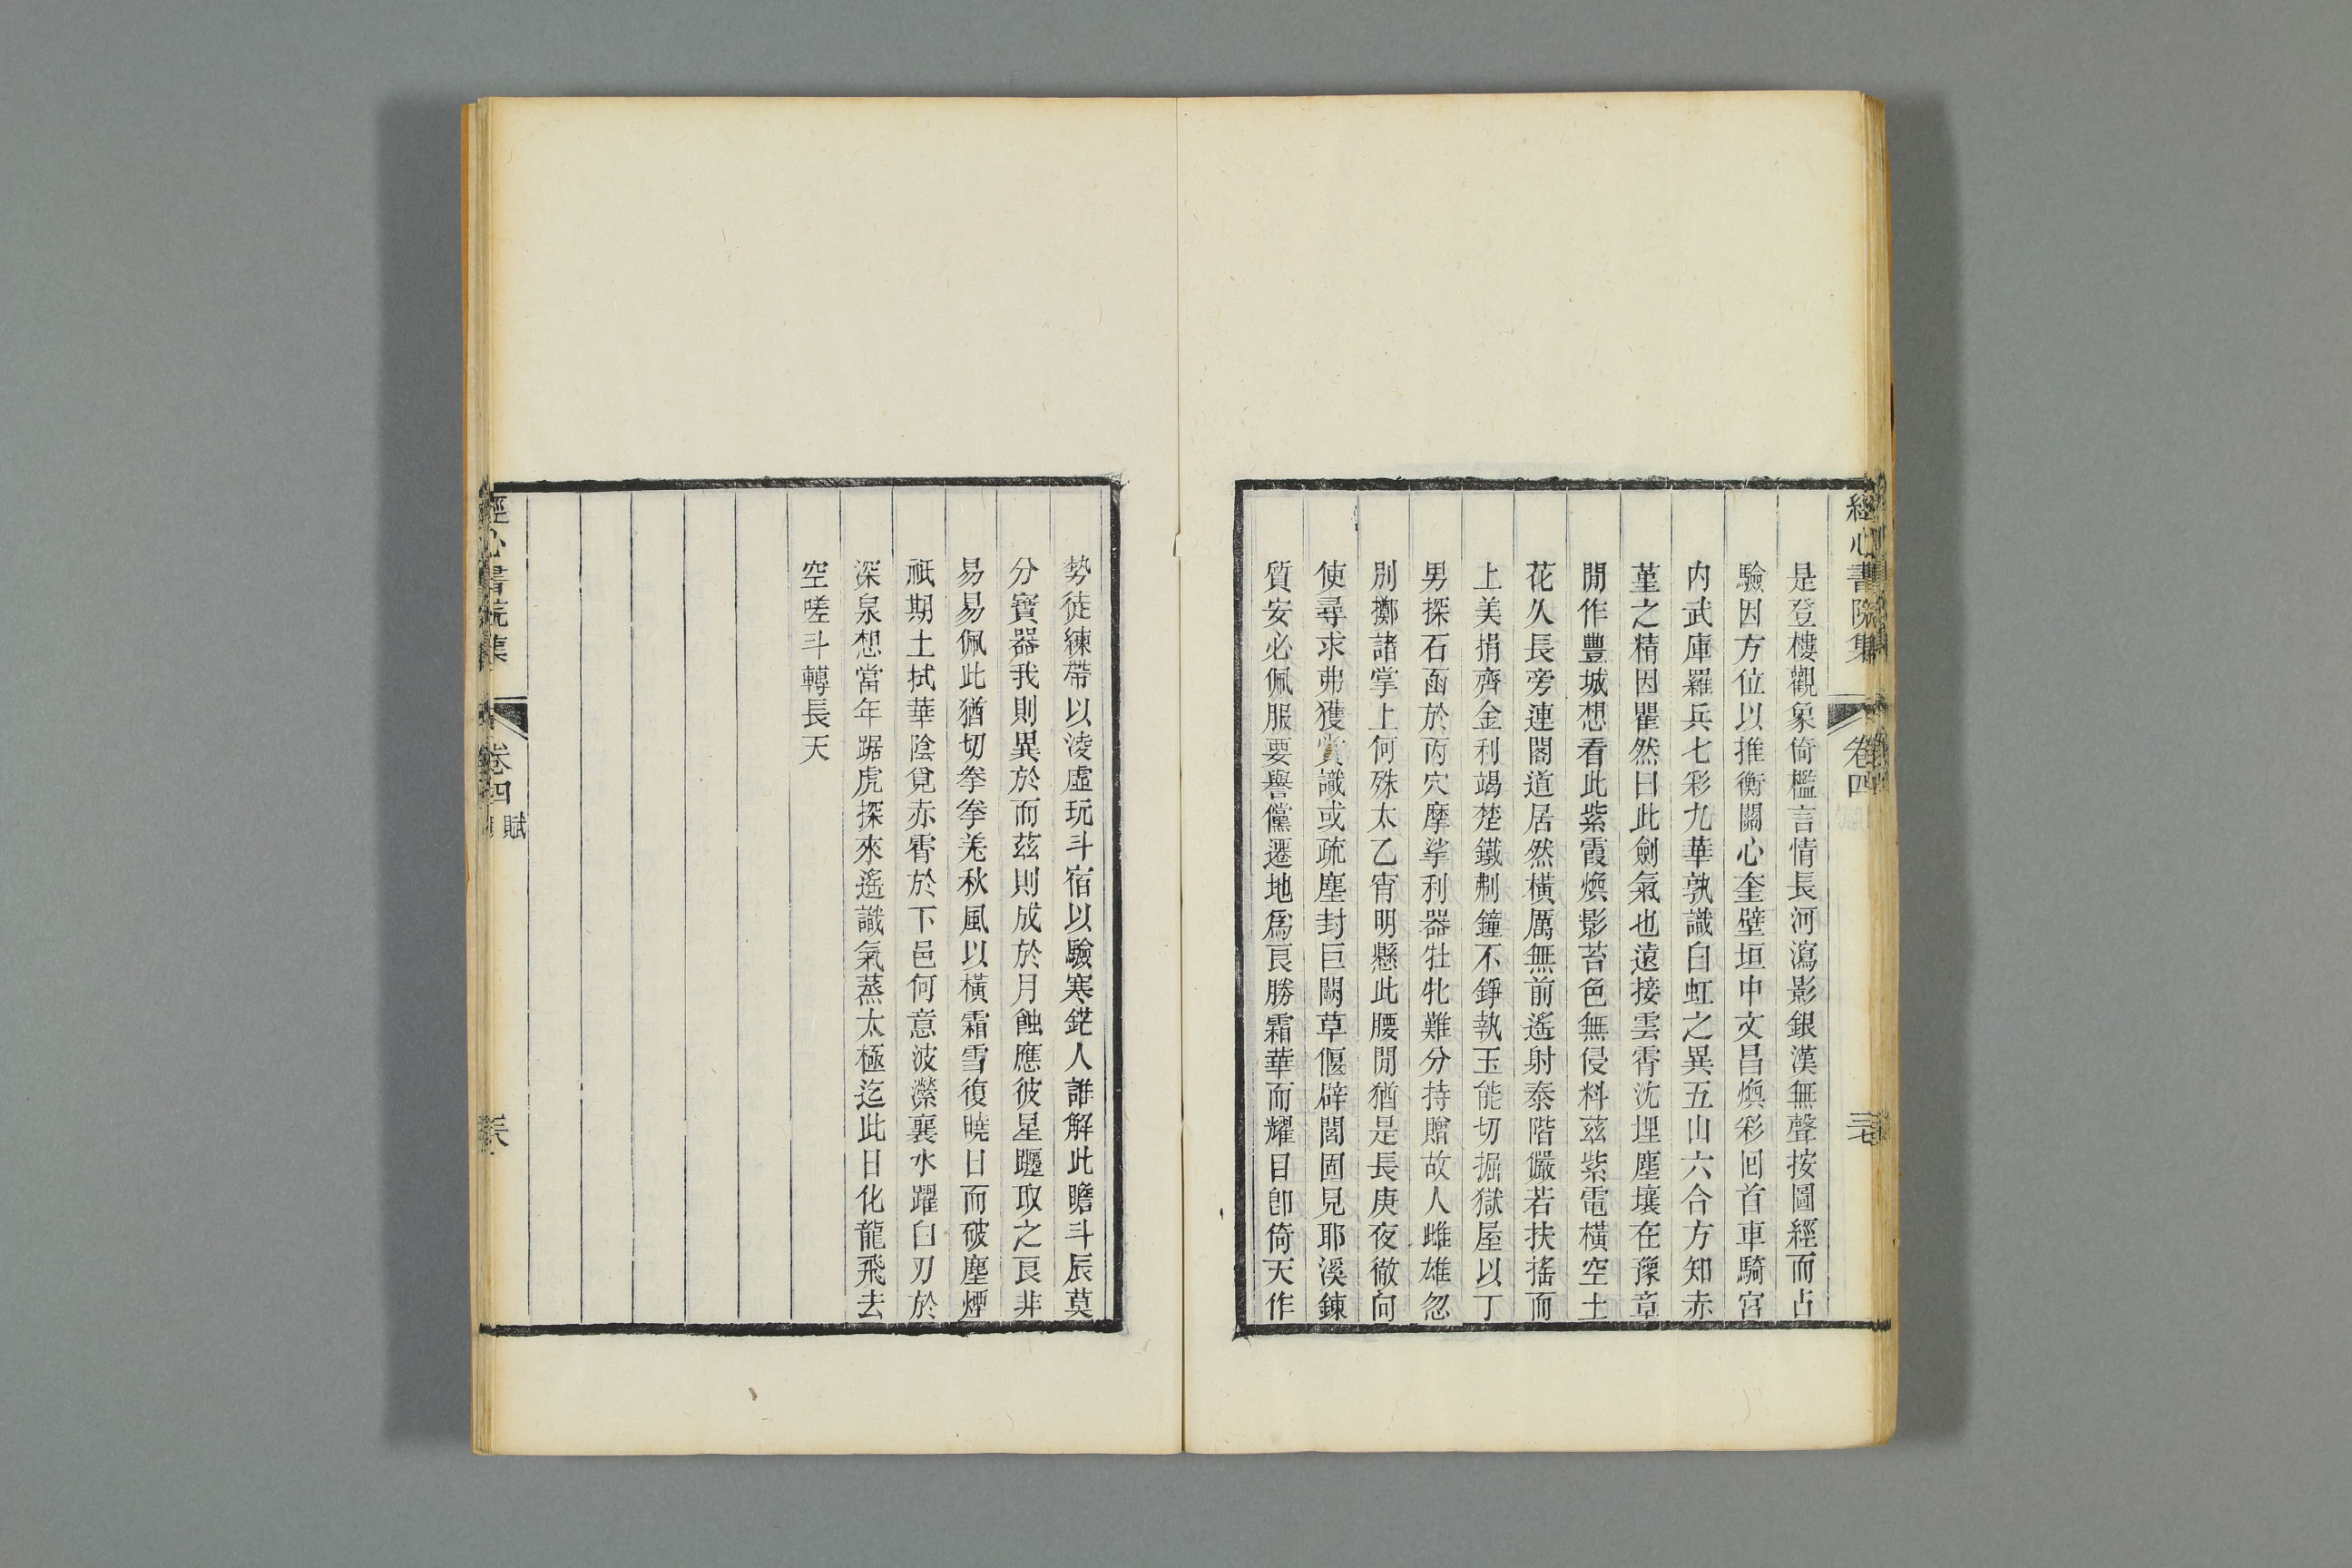 經心書院集
卷四
是登樓觀象倚檻言情長河瀉影銀漢無聲按圖經而占
驗因方位以推衡關心奎壁垣中文昌煥彩回首車騎宮
内武庫羅兵七彩九華孰識白虹之異五山六合方知赤
堇之精因瞿然曰此劍氣也遠接雲霄沈埋塵壤在豫章
閒作豐城想看此紫霞煥影苔色無侵料茲紫電橫空土
花久長旁連閣道居然橫厲無前遙射泰階儼若扶搖而
上美捐齊金利竭楚鐵刜鐘不錚執玉能切掘獄屋以丁
男探石函於丙穴摩挲利器牡牝難分持贈故人雌雄忽
別擲諸掌上何殊太乙宵明懸此腰閒猶是長庚夜徹向
使尋求弗獲賞識或疏塵封巨闕草偃辟閭固見耶溪鍊
質安必佩服要譽儻遷地爲良勝霜華而耀目卽倚天作
勢徒練帶以淩虛玩斗宿以驗寒鋩人誰解此瞻斗辰莫
分寶器我則異於而茲則成於月蝕應彼星躔取之良非
易易佩此猶切拳拳羌秋風以橫霜雪復曉日而破塵煙
祇期土拭華陰覓赤霄於下邑何意波瀠襄水躍白刃於
深泉想當年踞虎探來遙識氣蒸太極迄此日化龍飛去
空嗟斗轉長天
經心書院集
卷四
賦